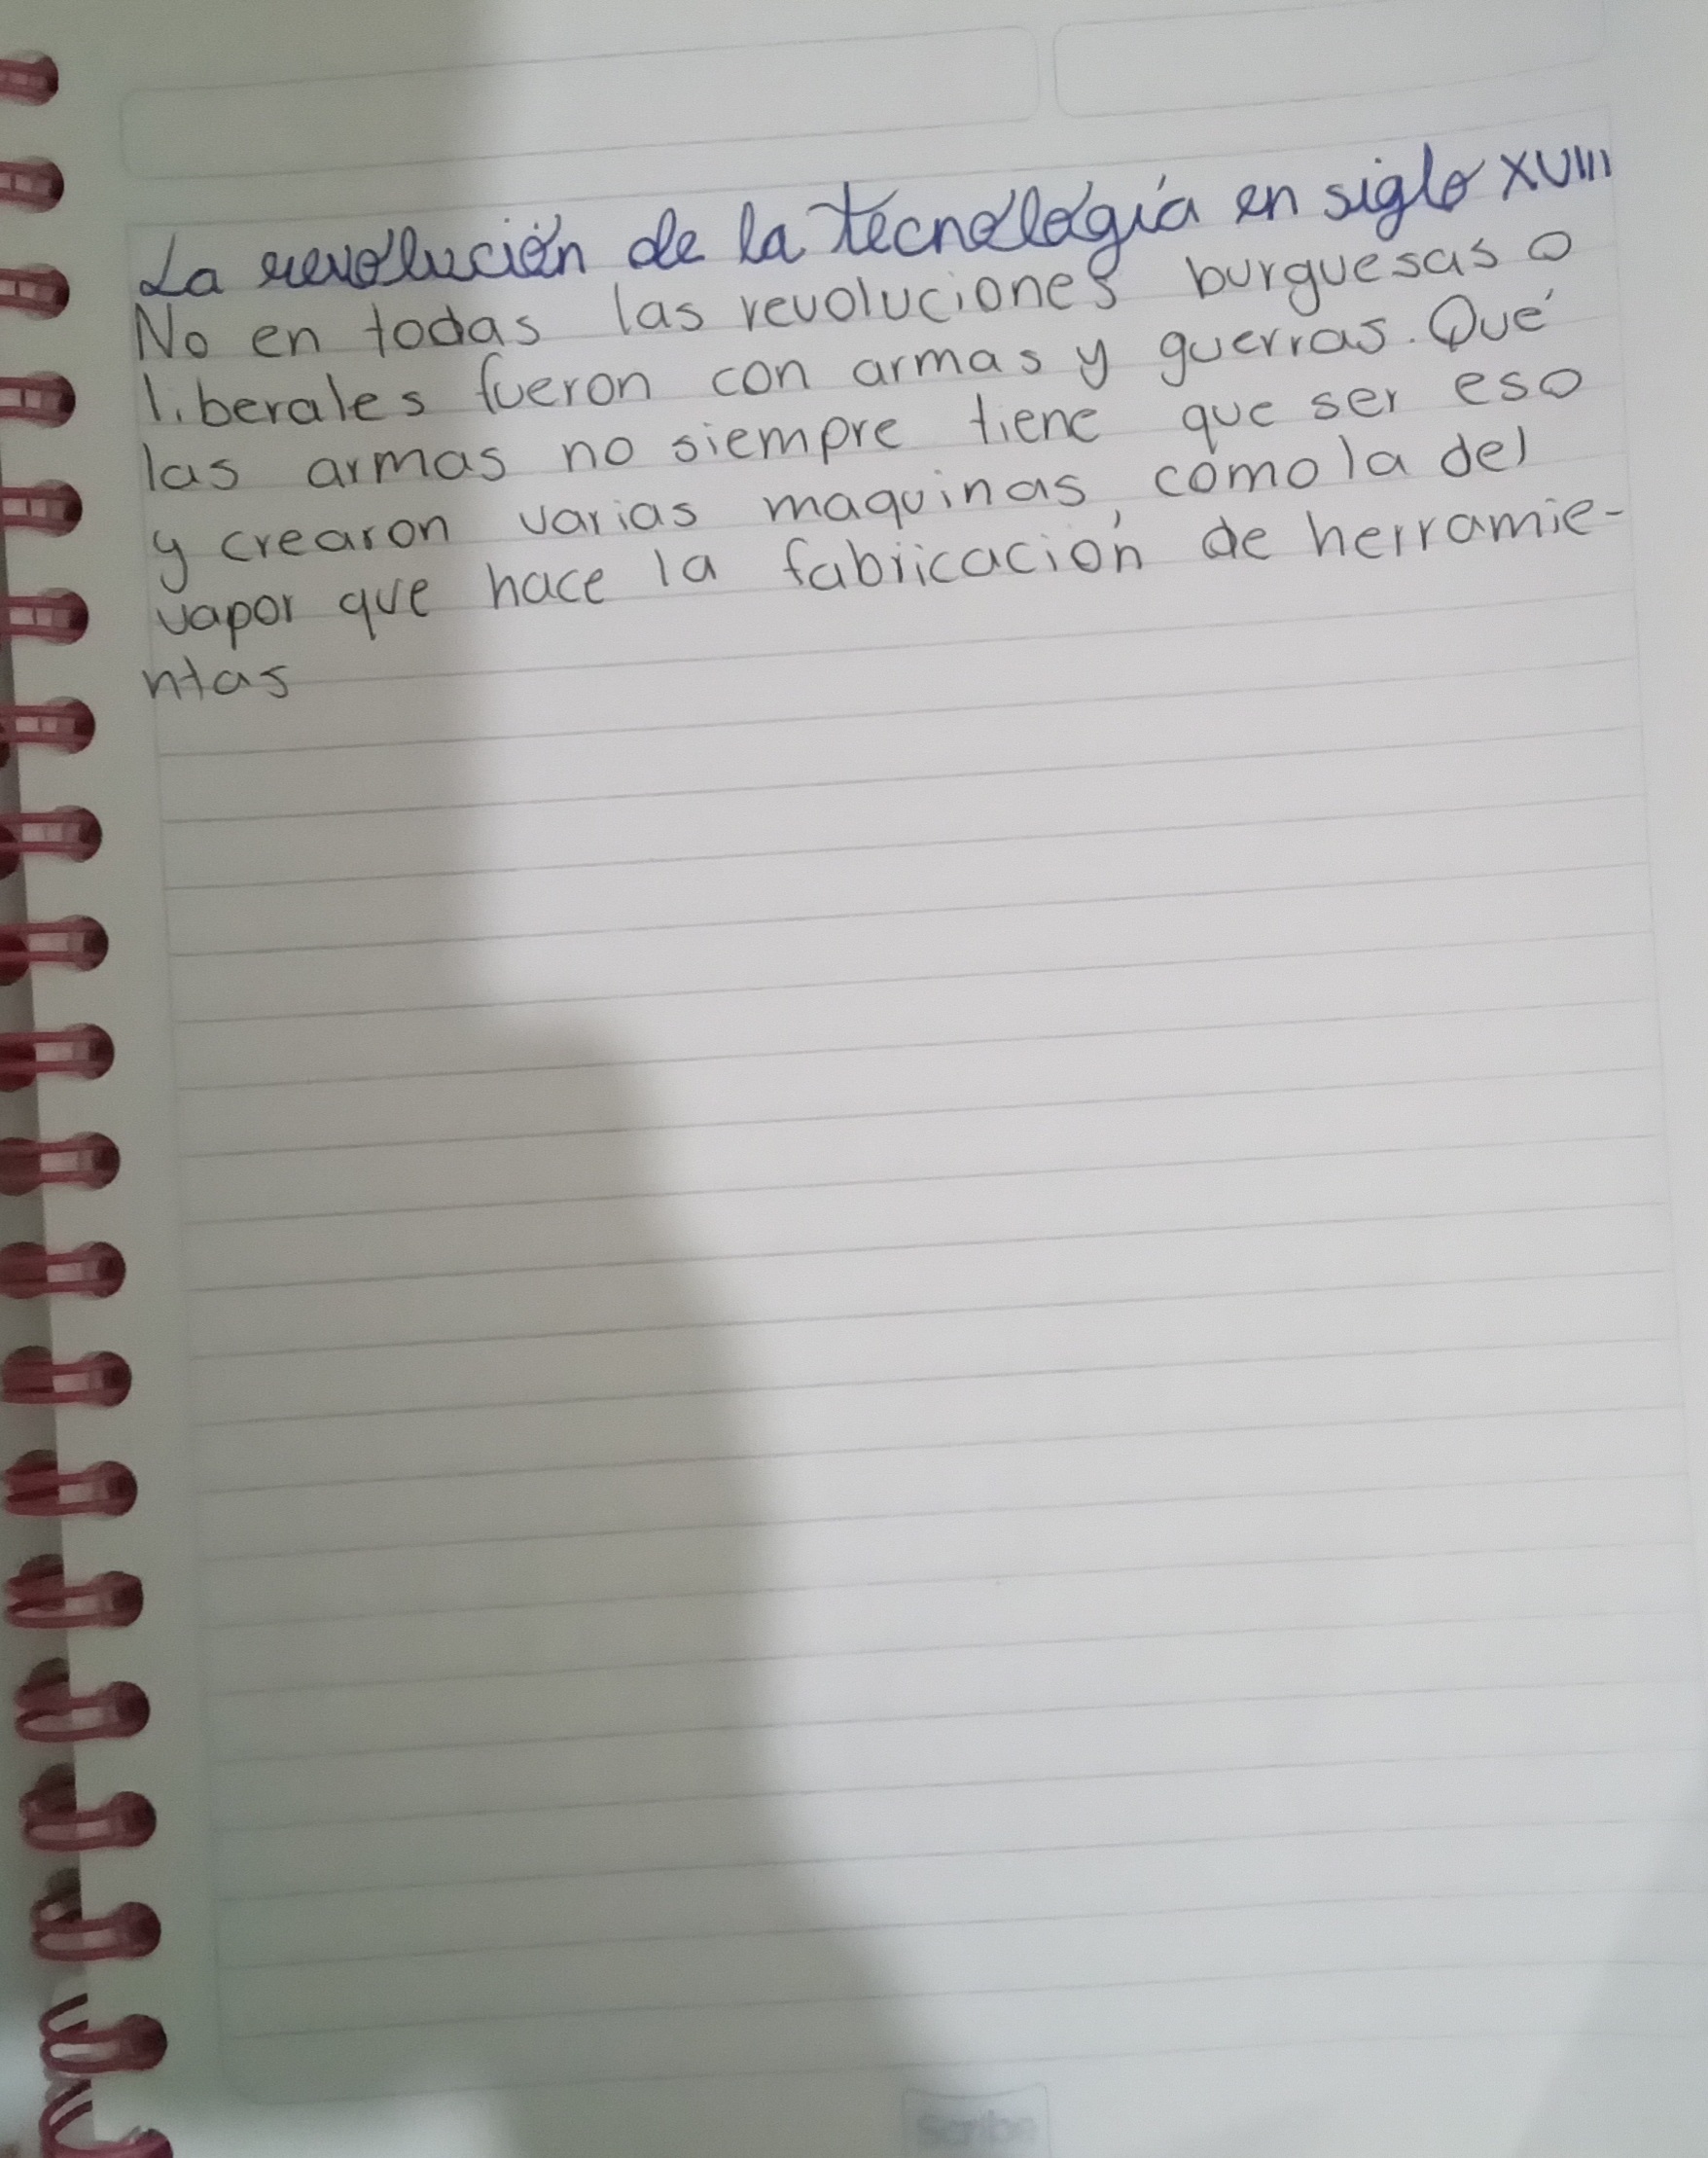 La revolución de la tecnología en siglo XVIII
No en todas las revoluciones burguesas o
liberales fueron con armas y guerras. Qué
las armas no siempre tiene que ser eso
y crearon varias maquinas, cómo la del
vapor que hace la fabricación de herramie-
ntas
Scribe